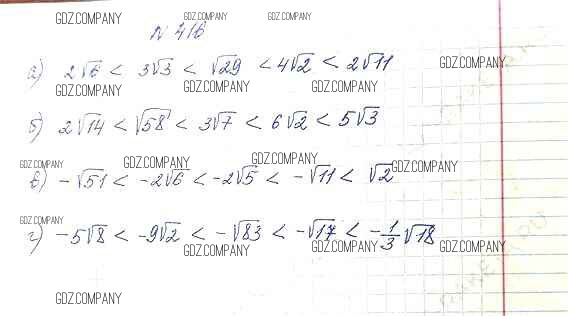 GDZ.COMPANY GDZ.COMPANY GDZ.COMPANY
N 416
а) 2√6 < 3√3 < √29 < 4√2 < 2√11
GDZ.COMPANY
GDZ.COMPANY GDZ.COMPANY GDZ.COMPANY
б) 2√14 < √58 < 3√7 < 6√2 < 5√3
GDZ.COMPANY GDZ.COMPANY GDZ.COMPANY GDZ.COMPANY
в) -√51 < -2√6 < -2√5 < -√11 < √2
GDZ.COMPANY
г) -5√8 < -9√2 < -√83 < -√17 < -1/3√18
GDZ.COMPANY GDZ.COMPANY GDZ.COMPANY
GDZ.COMPANY